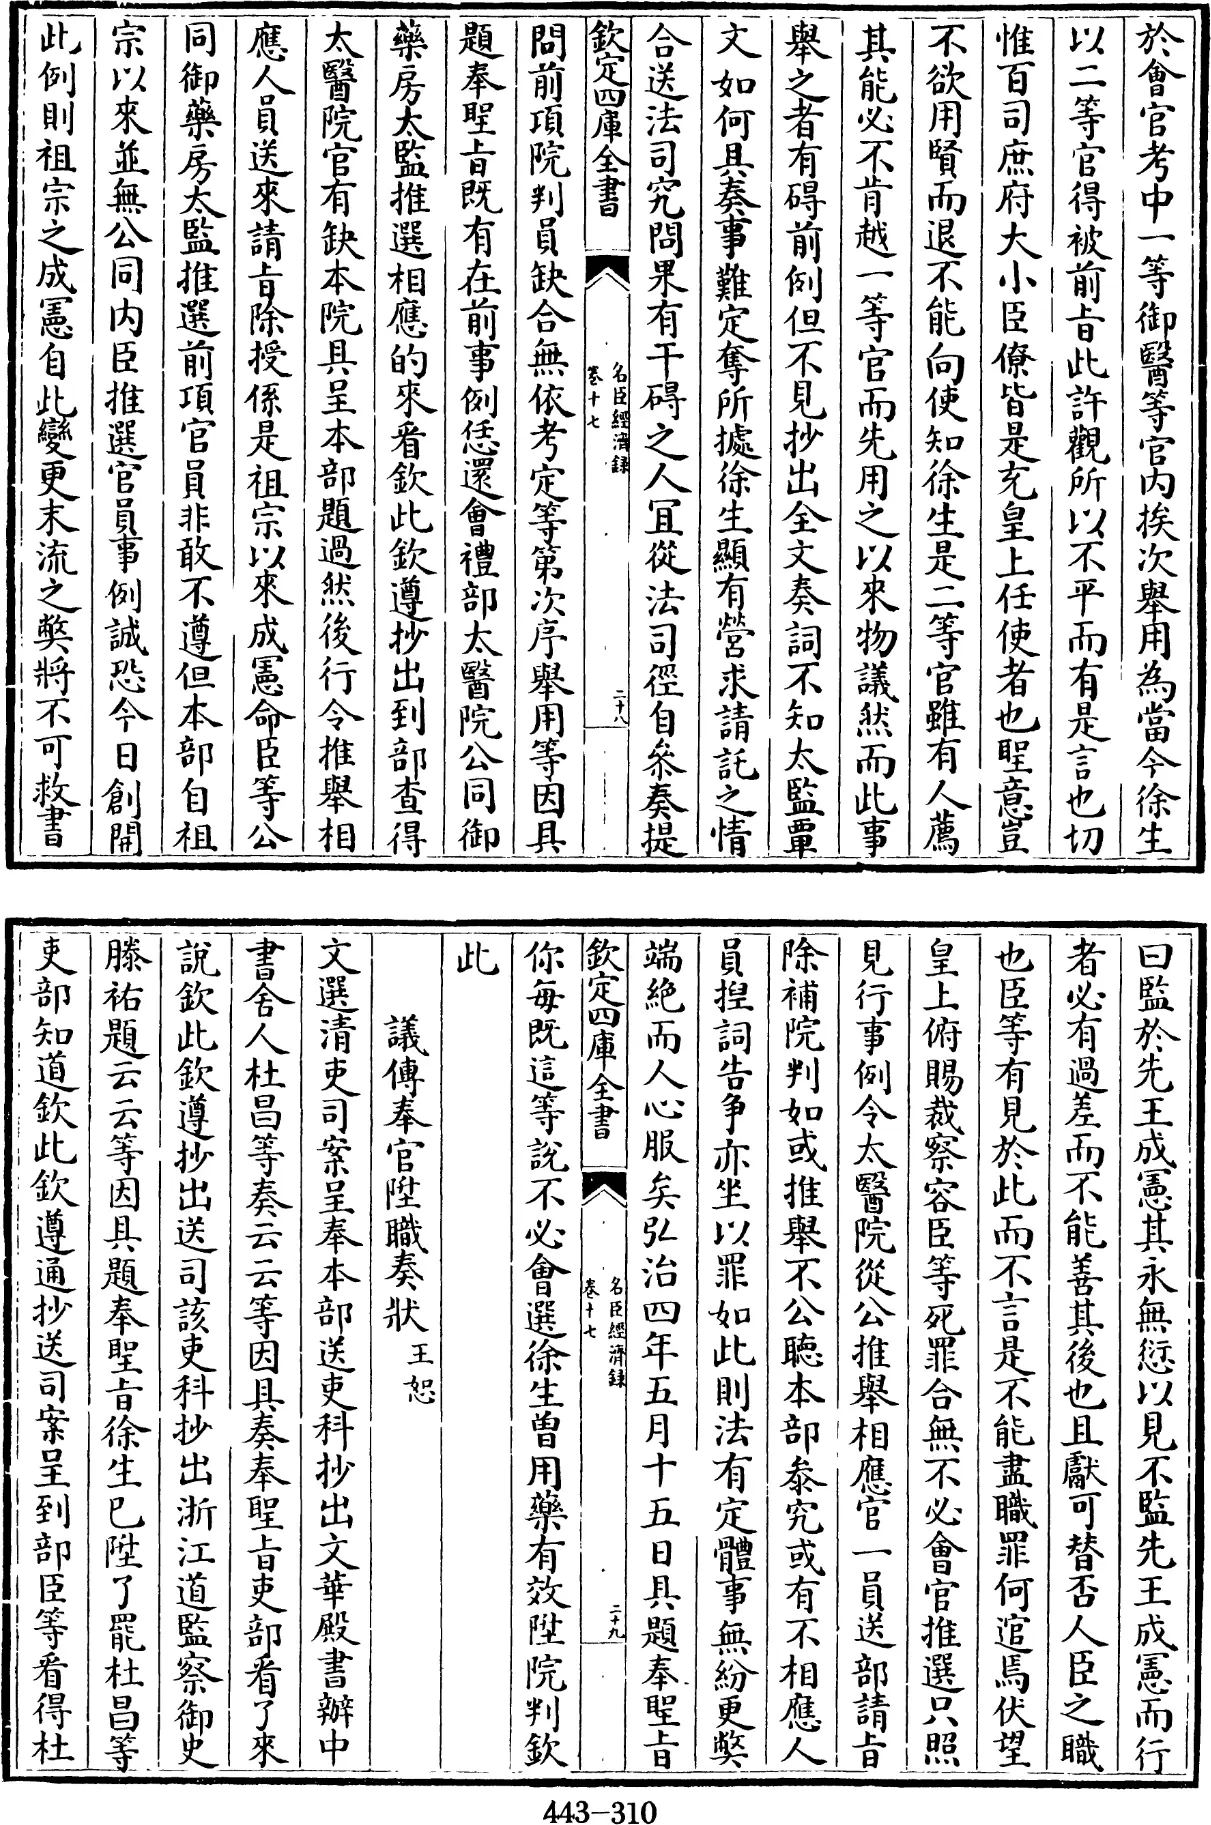 於會官考中一等御醫等官内挨次舉用為當今徐生
以二等官得被前㫖此許觀所以不平而有是言也切
惟百司庶府大小臣僚皆是充皇上任使者也聖意豈
不欲用賢而退不能向使知徐生是二等官雖有人薦
其能必不肯越一等官而先用之以來物議然而此事
舉之者有碍前例但不見抄出全文奏詞不知太監覃
文如何具奏事難定奪所據徐生顯有營求請託之情
合送法司究問果有干碍之人宜從法司徑自叅奏提
欽定四庫全書
名臣經濟録
卷十七
二十八
問前項院判員缺合無依考定等第次序舉用等因具
題奉聖㫖既有在前事例恁還會禮部太醫院公同御
藥房太監推選相應的來看欽此欽遵抄出到部查得
太醫院官有缺本院具呈本部題過然後行令推舉相
應人員送來請㫖除授係是祖宗以來成憲命臣等公
同御藥房太監推選前項官員非敢不遵但本部自祖
宗以來並無公同内臣推選官員事例誠恐今日創開
此例則祖宗之成憲自此變更末流之弊將不可救書
曰監於先王成憲其永無愆以見不監先王成憲而行
者必有過差而不能善其後也且獻可替否人臣之職
也臣等有見於此而不言是不能盡職罪何逭焉伏望
皇上俯賜裁察容臣等死罪合無不必會官推選只照
見行事例令太醫院從公推舉相應官一員送部請㫖
除補院判如或推舉不公聽本部叅究或有不相應人
員捏詞告争亦坐以罪如此則法有定體事無紛更弊
端絶而人心服矣弘治四年五月十五日具題奉聖㫖
欽定四庫全書
名臣經濟録
卷十七
二十九
你每既這等説不必會選徐生曽用藥有效陞院判欽
此
議傳奉官陞職奏狀 王恕
文選清吏司案呈奉本部送吏科抄出文華殿書辦中
書舍人杜昌等奏云云等因具奏奉聖㫖吏部看了來
說欽此欽遵抄出送司該吏科抄出浙江道監察御史
滕祐題云云等因具題奉聖㫖徐生已陞了罷杜昌等
吏部知道欽此欽遵通抄送司案呈到部臣等看得杜
443-310